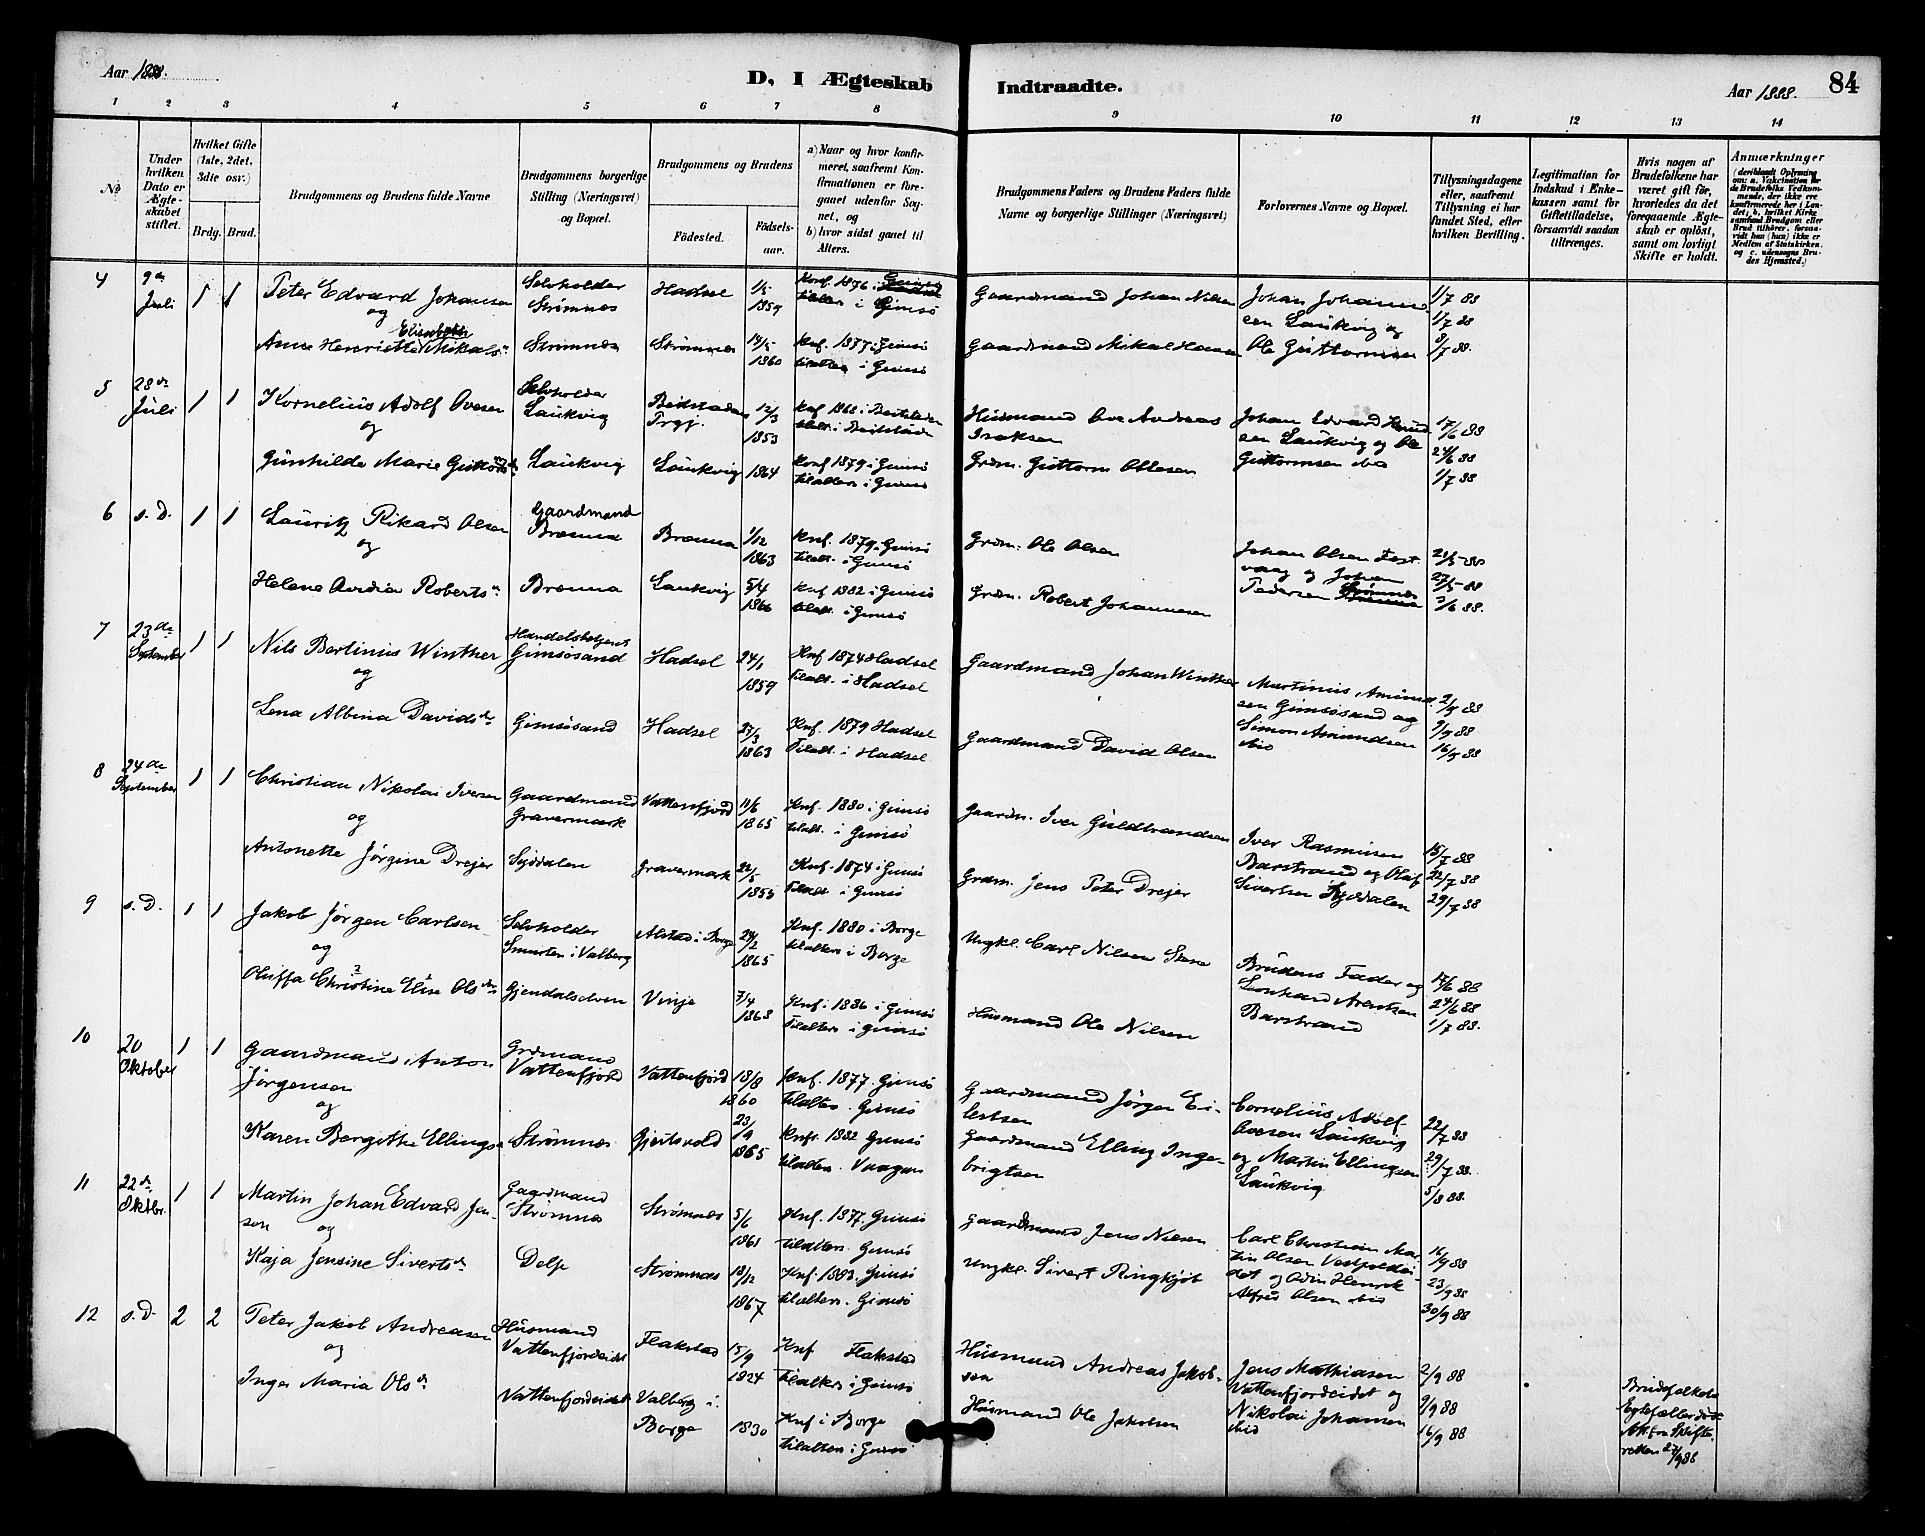 Aar 1888.
D, I Ægteskab
Indtraadte.
Aar 1888.
84
1 2 3 4 5 6 7 8 9 10 11 12 13 14
№
Under hvilken Dato er Ægteskabet stiftet.
Hvilket Gifte (1ste, 2det, 3die osv.)
Brdg. Brud.
Brudgommens og Brudens fulde Navne
Brudgommens borgerlige Stilling (Næringsvei) og Bopæl.
Brudgommens og Brudens
Fødested.
Fødselsaar.
a) Naar og hvor konfirmeret, saafremt Konfirmationen er foregaaet udenfor Sognet, og
b) hvor sidst gaaet til Alters.
Brudgommens Faders og Brudens Faders fulde Navne og borgerlige Stillinger (Næringsvei)
Forlovernes Navne og Bopæl.
Tillysningsdagene eller, saafremt Tillysning ei har fundet Sted, efter hvilken Bevilling.
Legitimation for Indskud i Enkekassen samt for Giftetilladelse, forsaavidt saadan tiltrænges.
Hvis nogen af Brudefolkene har været gift før, hvorledes da det foregaaende Ægteskab er opløst, samt om lovligt Skifte er holdt.
Anmærkninger
4 9de Juli 1 1 Peter Edvard Johansen Selvholder Strømnes Hadsel 1859 Knf. 1876 i Gimsø Gaardmand Johan Nilsen Johan Johannesen Laukvig og 1/7 88 1/7 88
og
Anne Henriette Elisabeth Mikals. Strømnes Strømnes 1860 Knf. 1877 i Gimsø til alters i Gimsø Gaardmand Mikal Hansen Ole Guttormsen 8/7 88.
5 28de Juli 1 1 Kornelius Adolf Ovesen Selvholder Laukvig Beitstaden Prgj. 12/3 1853 Knf. 1868 i Beitstaden Husmand Ove Andreas Isaksen Johan Edvard Knudsen Laukvig og Ole 17/6 88
og
Gunhilde Marie Guttormsd. Laukvig Laukvig 1864 Konf. 1879 i Gimsø til alters i Gimsø Grdm. Guttorm Olsen Guttormsen ibid 24/6 88 1/7 88
6 s. D. 1 1 Lauritz Rikard Olsen Gaardmand Brenna Brenna 1/12 1863 Knf. 1879 Gimsø tilalt. i Gimsø Grdm. Ole Olsen Johan Olsen Festvaag og Johan 27/5 88
og
Helene Andrea Roberts. Brenna Laukvig 5/4 1866 Knf. 1882 i Gimsø tilalt. i Gimsø Grdm. Robert Johannesen Pedersen Strømnes 3/6 88.
7 23de September 1 1 Nils Bertinius Winther Handelsbetjent Gimsøsand Hadsel 24/1 1859 Knf. 1874 Hadsel tilalt. i Hadsel Gaardmand Johan Winther Martinus Amundsen Gimsøsand og 2/9 88
og
Lena Albina Davidsdr. Gimsøsand Hadsel 27/3 1863 Knf. 1879 Hadsel Tilalt. i Hadsel Gaardmand David Olsen Simon Amundsen ibid 9/9 88 16/9 88
8 24de September 1 1 Christian Nikolai Iversen Gaardmand Gravermark Vattenfjord 11/6 1865 Knf. 1880 i Gimsø tilalt. i Gimsø Gaardm. Iver Guldbrandsen Iver Rasmussen 15/7 88
og
Antonette Jørgine Drejer Syddalen Gravermark 22/5 1855 Knf. 1874 i Gimsø Tilalt i Gimsø Grdm. Jens Peter Drejer Barstrand og Olaf Sivertsen Syddalen 22/7 88 29/7 88
9 s. D. 1 1 Jakob Jørgen Carlsen Selvholder Smorten i Valberg Alstad i Borge 24/2 1865 Knf. 1880 i Borge tilalters i Borge Ungkl. Carl Nilsen Stene Brudens Fader og 17/6 88
og
Oluffa Christine Elise Olsdr. Gjendalselven Vinje 7/4 1868 Knf. 1886 i Gimsø Tilalters i Gimsø Husmand Ole Nilsen Leonhard Arentsen Barstrand 24/6 88 1/7 88.
10 20 Oktober 1 1 Gaardmand Anton Jørgensen Grdmand Vattenfjord Vattenfjord 18/8 1860 Knf. 1877. Gimsø tilalters. Gimsø Gaardmand Jørgen Eilertsen Cornelius Adolf Ovesen Laukvig 22/7 88
og
Karen Bergitthe Ellings. Strømnes Gjeitsvold 23/9 1865 Knf. 1882 Gimsø tilalters. Vaagan Gaardmand Elling Ingebrigtsen og Martin Ellingsen Laukvig 29/7 88. 5/8 88.
11 22de Oktbr. 1 1 Martin Johan Edvard Jensen Gaardmand Strømnes Strømnes 5/6 1861 Knf. 1877. Gimsø tilalters. Gimsø Gaardmand Jens Nilsen Carl Christian Martin Olsen 16/9 88
og
Kaja Jensine Sivertsd. Delp Strømnes 18/12 1867 Knf. 1883. Gimsø tilalters. Gimsø Ungkl. Sivert Ringkjøb og Odin Henrik Alfred Olsen ibid 23/9 88 30/9 88
12 s. D. 2 2 Peter Jakob Andreasen Husmand Vattenfjordeidet Flakstad 15/9 1824 Knf Flakstad Tilalters i Gimsø Husmand Andreas Jakobsen Jens Mathiasen Vattenfjordeidet og 2/9 88
og
Inger Maria Olsd. Vattenfjordeidet Valberg i Borge 1830 Knf i Borge tilalters i Gimsø Husmand Ole Jakobsen Nikolai Johansen ibid 9/9 88 16/9 88 Brudefolkets Egtefæller døde